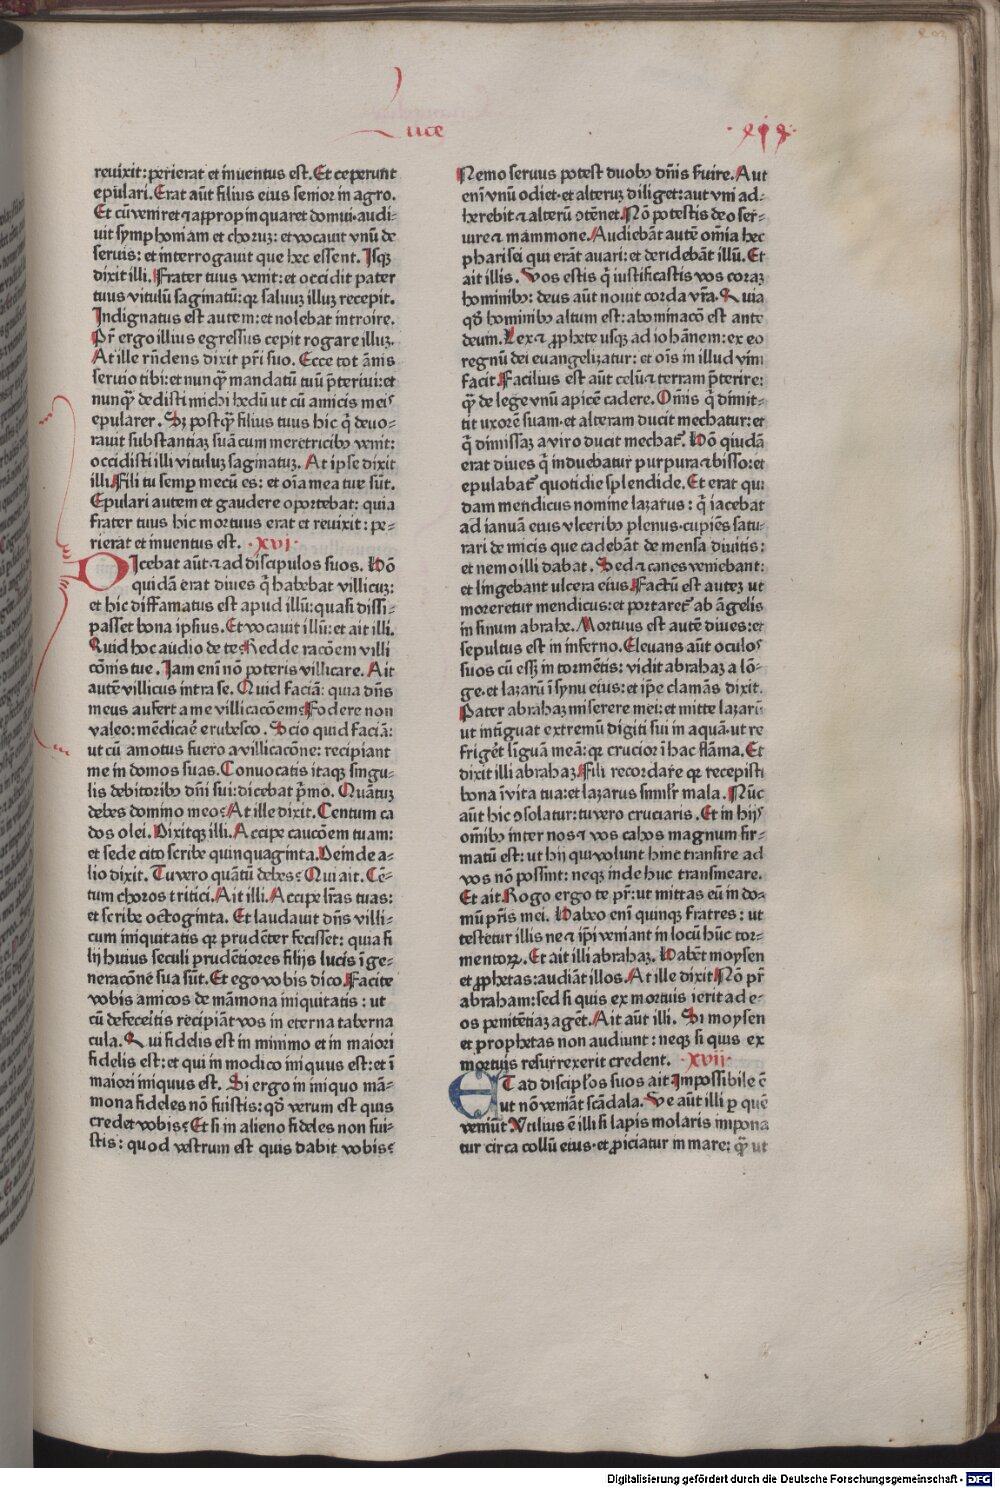 Luce
reuixit: perierat et inuentus est. Et ceperunt
epulari. Erat aūt filius eius senior in agro.
Et cū veniret ⁊ appropinquaret domui· audi⸗
uit symphoniam et choruꝫ: et vocauit vnū de
seruis: et interrogauit que hec essent. Isqꝫ
dixit illi. Frater tuus venit: et occidit pater
tuus vitulū saginatū: qꝛ saluuꝫ illuꝫ recepit.
Indignatus est autem: et nolebat introire.
Pr̄ ergo illius egressus cepit rogare illuꝫ.
At ille rn̄dens dixit pr̄i suo. Ecce tot ānis
seruio tibi: et nunqͣꝫ mandatū tuū p̄teriui: et
nunqͣꝫ dedisti michi hedū ut cū amicis meis
epularer. Sꝫ postqͣꝫ filius tuus hic q̄ deuo⸗
rauit substantiaꝫ suā cum meretricibꝰ venit:
occidisti illi vituluꝫ saginatuꝫ. At ipse dixit
illi. Fili tu semꝑ mecū es: et oīa mea tue sūt.
Epulari autem et gaudere oportebat: quia
frater tuus hic mortuus erat et reuixit: pe⸗
rierat et inuentus est. ·xvi·
DIcebat aūt ⁊ ad discipulos suos. Hō
quidā erat diues q̄ habebat villicuꝫ:
et hic diffamatus est apud illū: quasi dissi⸗
passet bona ipsius. Et vocauit illū: et ait illi.
Quid hoc audio de te? Redde racōem villi
cōnis tue. Iam enī nō poteris villicare. Ait
autē villicus intra se. Quid faciā: quia dn̄s
meus aufert a me villicacōem? Fodere non
valeo: mēdicaē erubesco. Scio quid faciā:
ut cū amotus fuero a villicacōne: recipiant
me in domos suas. Conuocatis itaqꝫ singu⸗
lis debitoribꝰ dn̄i sui: dicebat p̄mo. Quātuꝫ
debes domino meo? At ille dixit. Centum ca
dos olei. Dixitqꝫ illi. Accipe caucōem tuam:
et sede cito scribe quinquaginta. Deinde a⸗
lio dixit. Tu vero quātū debes? Qui ait. Cē⸗
tum choros tritici. Ait illi. Accipe lr̄as tuas:
et scribe octoginta. Et laudauit dn̄s villi⸗
cum iniquitatis qꝛ prudēter fecisset: quia fi
lij huius seculi prudētiores filijs lucis ī ge⸗
neracōne sua sūt. Et ego vobis dico. Facite
vobis amicos de māmona iniquitatis: ut
cū defeceitis recipiāt vos in eterna taberna
cula. Qui fidelis est in minimo et in maiori
fidelis est: et qui in modico iniquus est: et ī
maiori iniquus est. Si ergo in iniquo mā⸗
mona fideles nō fuistis: qd̄ verum est quis
credet vobis? Et si in alieno fideles non fui⸗
stis: quod vestrum est quis dabit vobis?
Nemo seruus potest duobꝰ dn̄is ẜuire. Aut
enī vnū odiet· et alteruꝫ diliget: aut vni ad⸗
herebit ⁊ alterū ꝯtēnet. Nō potestis deo ser⸗
uire ⁊ mammone. Audiebāt autē om̄ia hec
pharisei qui erāt auari: et deridebāt illū. Et
ait illis. Vos estis q̄ iustificastis vos coraꝫ
hominibꝰ: deus aūt nouit corda vr̄a. Quia
qd̄ hominibꝰ altum est: abominacō est ante
deum. Lex ⁊ ꝓphete usqꝫ ad iohānem: ex eo
regnū dei euangelizatur: et oīs in illud vim
facit. Facilius est aūt celū ⁊ terram p̄terire:
qͣꝫ de lege vnū apicē cadere. Om̄is q̄ dimit⸗
tit uxorē suam· et alteram ducit mechatur: et
q̄ dimissaꝫ a viro ducit mechat᷑. Hō quidā
erat diues q̄ induebatur purpura ⁊ bisso: et
epulabat᷑ quotidie splendide. Et erat qui
dam mendicus nomine lazarus: q̄ iacebat
ad ianuā eius vlceribꝰ plenus· cupiēs satu⸗
rari de micis que cadebāt de mensa diuitis:
et nemo illi dabat. Sed ⁊ canes veniebant:
et lingebant ulcera eius. Factū est auteꝫ ut
moreretur mendicus: et portaret᷑ ab āgelis
in sinum abrahe. Mortuus est autē diues: et
sepultus est in inferno. Eleuans aūt oculos
suos cū essꝫ in tormētis: vidit abrahaꝫ a lō⸗
ge· et lazarū ī synu eius: et ip̄e clamās dixit.
Pater abrahaꝫ miserere mei: et mitte lazarū
ut intīguat extremū digiti sui in aquā· ut re
friget līguā meā: qꝛ crucior ī hac flāma. Et
dixit illi abrahaꝫ. Fili recordare qꝛ recepisti
bona ī vita tua: et lazarus similr̄ mala. Nūc
aūt hic ꝯsolatur: tu vero cruciaris. Et in hijs
om̄ibꝰ inter nos ⁊ vos cahos magnum fir⸗
matū est: ut hij qui volunt hinc transire ad
vos nō possint: neqꝫ inde huc transmeare.
Et ait. Rogo ergo te pr̄: ut mittas eū in do⸗
mū pr̄is mei. Habeo enī quinqꝫ fratres: ut
testetur illis ne ⁊ ip̄i veniant in locū hūc tor⸗
mentoꝝ. Et ait illi abrahaꝫ. Habēt moysen
et ꝓphetas: audiāt illos. At ille dixit. Nō pr̄
abraham: sed si quis ex mortuis ierit ad e⸗
os penitētiaꝫ agēt. Ait aūt illi. Si moysen
et prophetas non audiunt: neqꝫ si quis ex
mortuis resurrexerit credent. ·xvii·
ET ad discipl̄os suos ait. Impossibile ē
ut nō veniāt scādala. Ve aūt illi ꝑ quē
veniūt. Vtilius ē illi si lapis molaris impona
tur circa collū eius· et ꝓiciatur in mare: qͣꝫ ut
Digitalisierung gefördert durch die Deutsche Forschungsgemeinschaft - DFG